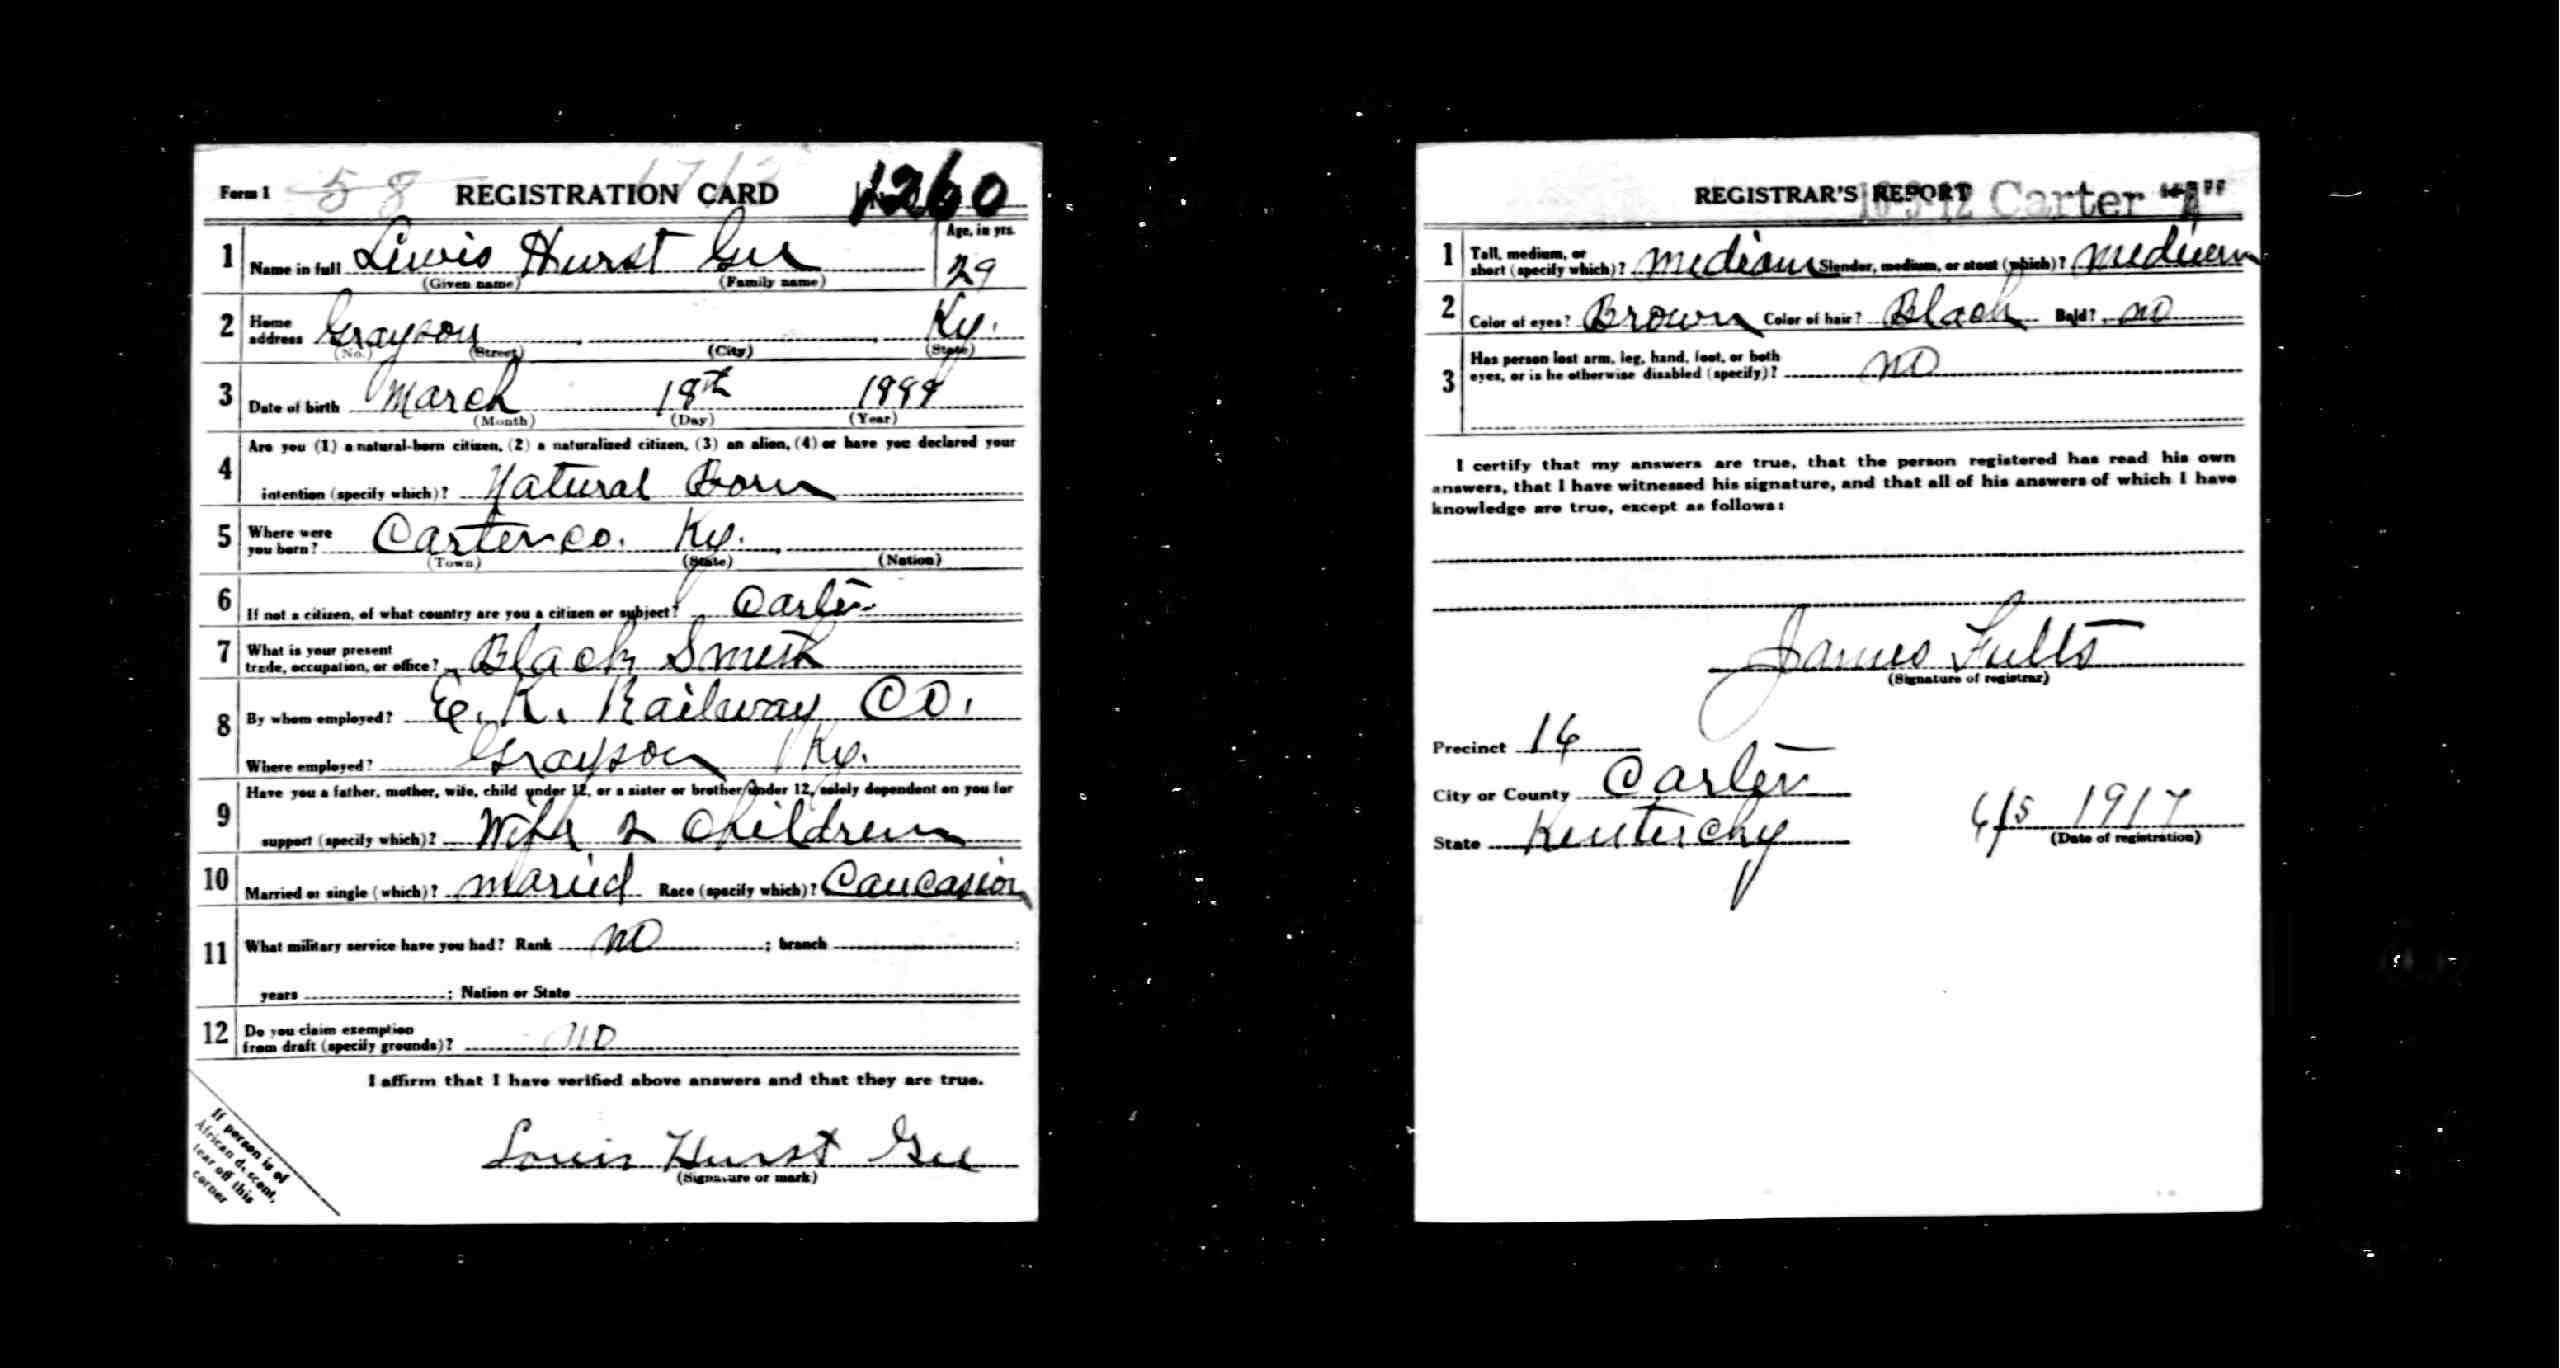 Form 1 58 REGISTRATION CARD 1260
1 Name in full Lewis Hurst Gee Age, in yrs. 29
(Given name) (Family name)
2 Home address Grayson Ky.
(No.) (Street) (City) (State)
3 Date of birth March 18th 1888
(Month) (Day) (Year)
Are you (1) a natural-born citizen, (2) a naturalized citizen, (3) an alien, (4) or have you declared your
4 intention (specify which)? Natural Born
5 Where were you born? Carter co. Ky.
(Town) (State) (Nation)
6 If not a citizen, of what country are you a citizen or subject? Carter
7 What is your present trade, occupation, or office? Black Smith
8 By whom employed? E. K. Railway CO.
Where employed? Grayson Ky.
9 Have you a father, mother, wife, child under 12, or a sister or brother under 12, solely dependent on you for
support (specify which)? Wife 2 Children
10 Married or single (which)? maried Race (specify which)? Caucasion
11 What military service have you had? Rank no ; branch ;
years ; Nation or State
12 Do you claim exemption from draft (specify grounds)? no
I affirm that I have verified above answers and that they are true.
Louis Hurst Gee
(Signature or mark)
If person is of
African descent,
tear off this
corner
REGISTRAR'S REPORT Carter
1 Tall, medium, or short (specify which)? medium Slender, medium, or stout (which)? medium
2 Color of eyes? Brown Color of hair? Black Bald? no
3 Has person lost arm, leg, hand, foot, or both
eyes, or is he otherwise disabled (specify)? no
I certify that my answers are true, that the person registered has read his own
answers, that I have witnessed his signature, and that all of his answers of which I have
knowledge are true, except as follows:
James Fults
(Signature of registrar)
Precinct 16
City or County Carter
State Kentucky 6/5 1917
(Date of registration)